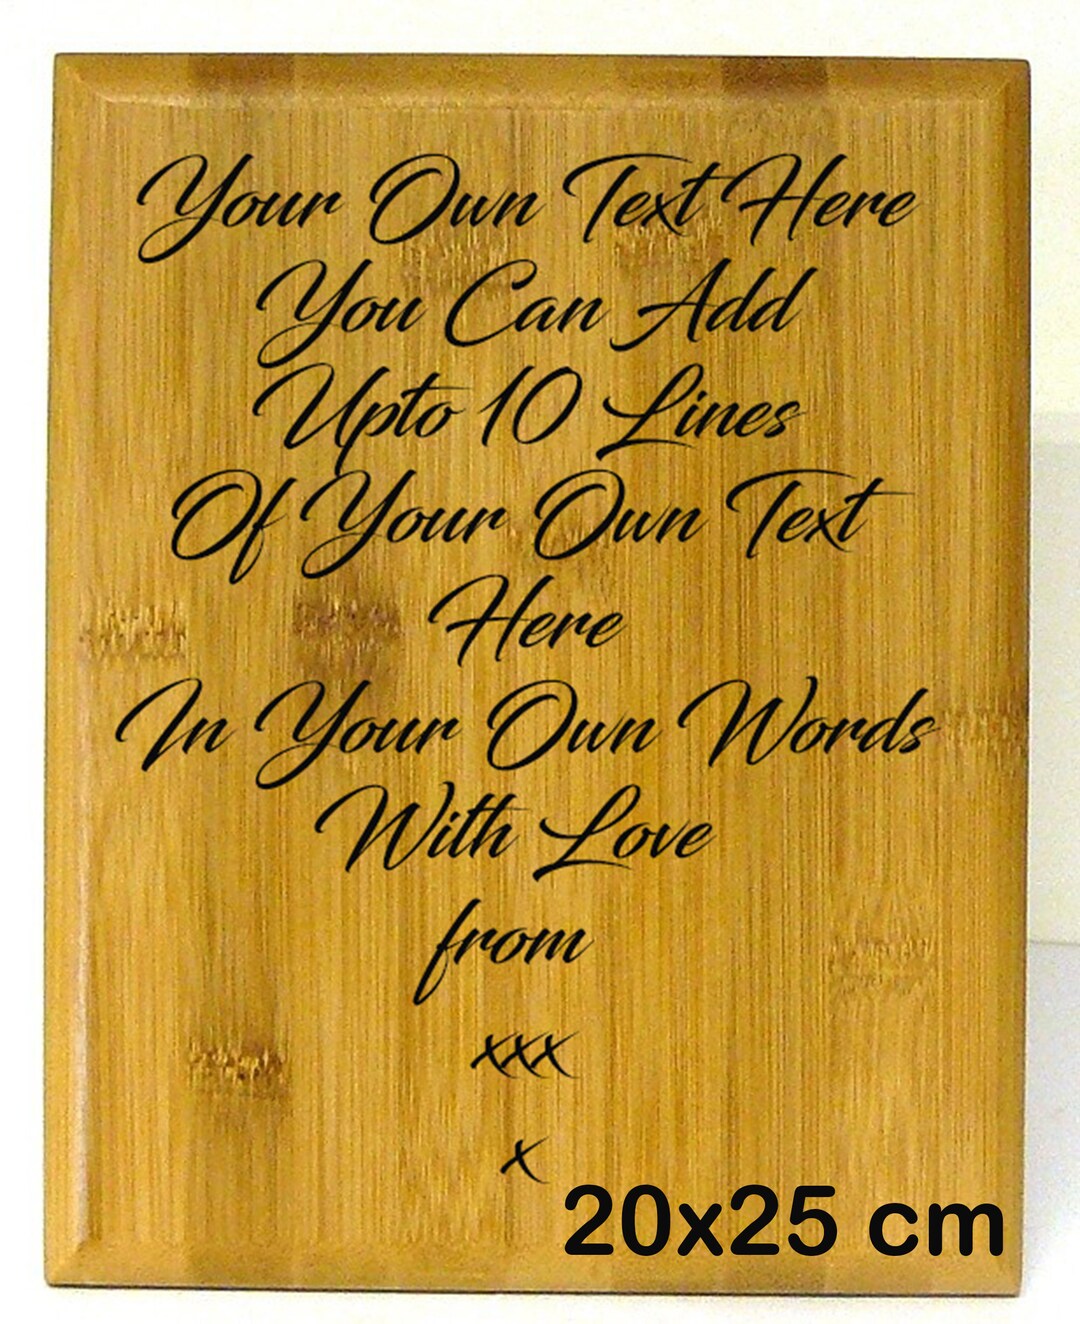 Your Own Text Here
You Can Add
Upto 10 Lines
Of Your Own Text
Here
In Your Own Words
With Love
from
xxx
x
20x25 cm